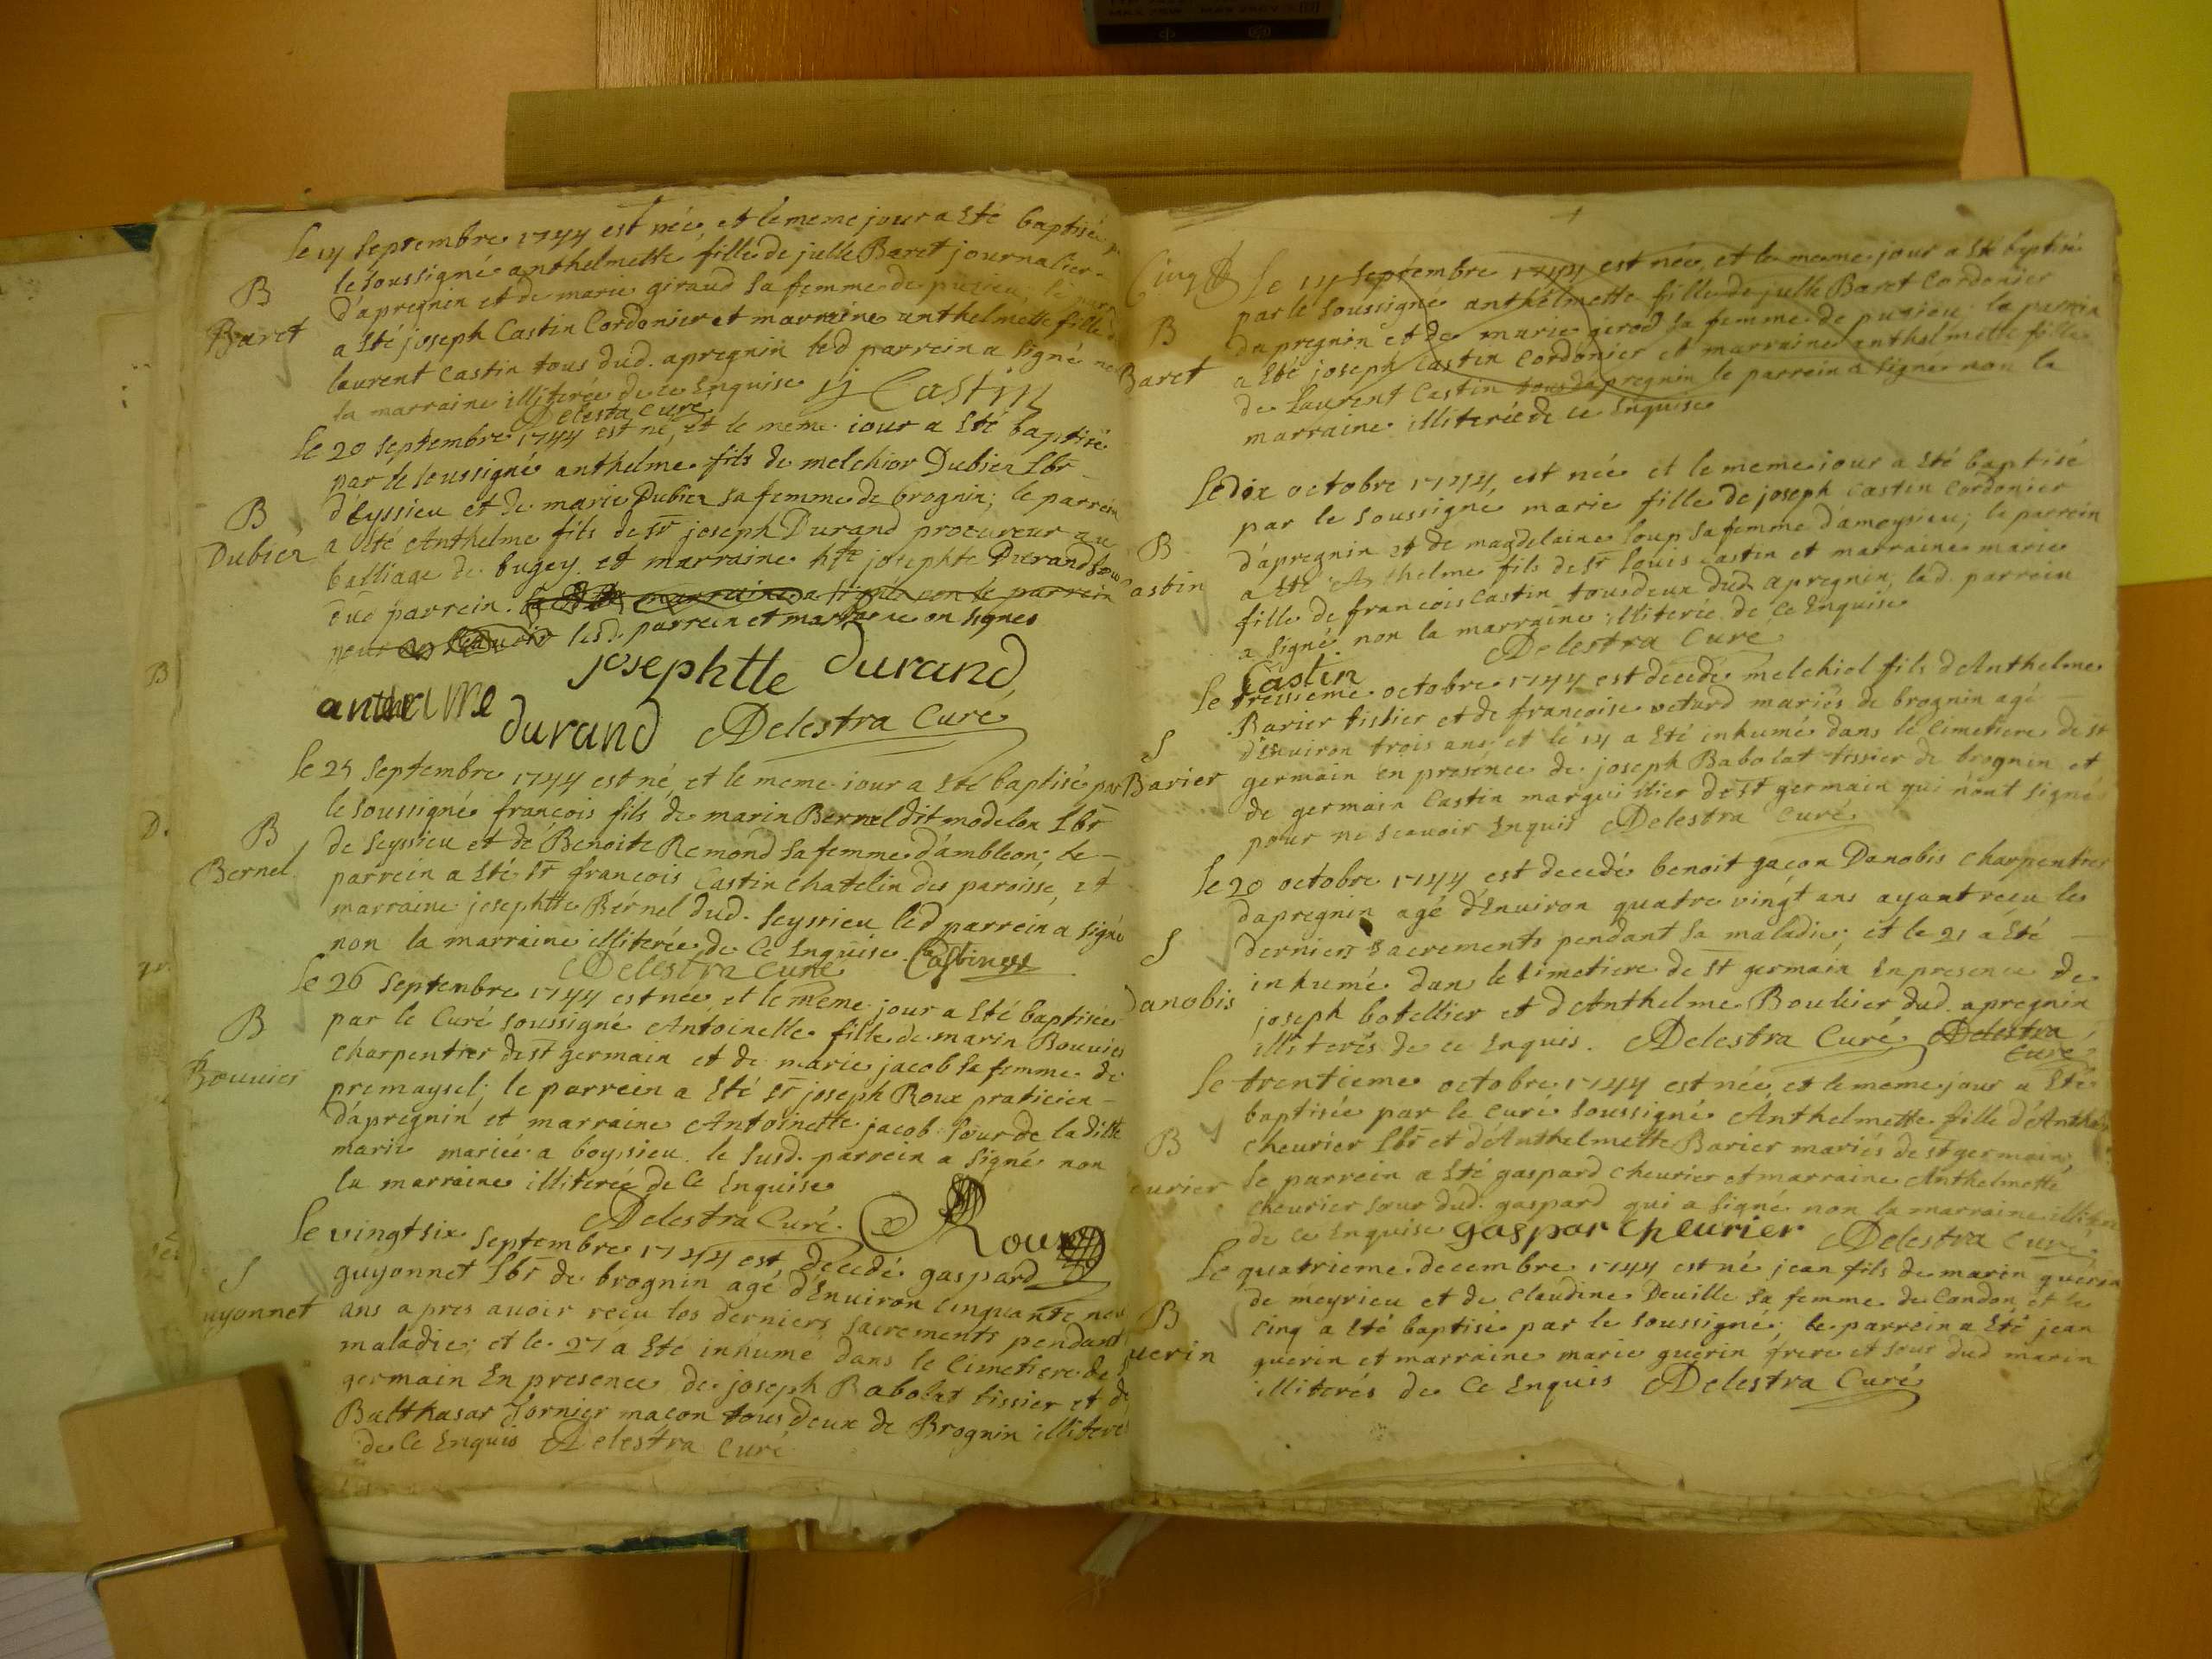 le 14 septembre 1744 est née, et le meme jour a Eté baptisé
le soussigné anthelmette fille de julle Baret journalier
B
d'apregnin et de marie giraud sa femme de puzieu; le
Baret
a Eté joseph Castin Cordonier et marraine anthelmette fille
laurent Castin tous dud. apregnin led parrein a signé
la marraine illiterée de ce Enquise Castin
Delestra curé
le 20 septembre 1744 est né, et le meme iour a Eté baptisé
par le soussigné anthelme fils de melchior Dubiez Lbr
d'Eyssieu et de marie Dubiez sa femme de brognin; le parrein
B
Dubiez
a Eté Anthelme fils de Sr joseph Durand procureur au
balliage de bugey. et marraine josephte Durand
dud parrein. la marraine a signé non le parrein
pour ne scavoir lesd. parrein et marraine on signes
josephtte durand
anthelme
durand Delestra Curé
le 25 septembre 1744 est né, et le meme iour a Eté baptisé par
le soussigné françois fils de marin Bernel dit modelon Lbr
B
de seyssieu et de Benoite Remond sa femme d'ambleon; le
Bernel
parrein a Eté Sr françois Castin chatelin des paroisse, et
marraine josephtte Bernel dud. seyssieu led parrein a signé
non la marraine illiterée de ce Enquise. Castin
Delestra curé
le 26 septembre 1744 est née et le meme jour a Eté baptisée
B
par le Curé soussigné Antoinette fille de marin Bouvier
charpentier de St germain et de marie jacob sa femme de
Bouvier
premaysel; le parrein a Eté Sr joseph Roux praticien
d'apregnin et marraine Antoinette jacob sour de laditte
marie mariée a boyssieu. le susd. parrein a signé non
la marraine illiterée de ce Enquise
Delestra Curé. Roux
le vingt six septembre 1744 est decedé gaspard
S
guyonnet Lbr de brognin agé d'Enuiron cinquante
uyonnet
ans apres auoir reçu les derniers sacrements pendant
maladie; et le 27 a Eté inhumé dans le cimetiere de
germain En presence de joseph Babolat tissier et de
Balthasar fornier maçon tous deux de Brognin illitere
de ce Enquis Delestra curé
Cinq
le 14 septembre 1744 est née, et le meme jour a Eté baptisé
par le soussigné anthelmette fille de julle Baret Cordonier
B
d'apregnin et de marie gerod sa femme de puzieu; le parrein
Baret
a Eté joseph Castin Cordonier et marraine anthelmette fille
de Laurent Castin tous d'apregnin le parrein a signé non la
marraine illiterée de ce Enquise
le dix octobre 1744, est née et le meme iour a Eté baptisé
par le soussigné marie fille de joseph castin Cordonier
B
d'apregnin et de magdelaine loup sa femme d'ameyzieu; le parrein
astin
a Eté Anthelme fils de Sr Louis castin et marraine marie
fille de francois Castin tous deux dud apregnin, led. parrein
a signé non la marraine illiterée de ce Enquise
Castin
Delestra curé
le treisieme octobre 1744 est decedé melchiol fils d'Anthelme
Barier tissier et de francoise vetard mariés de brognin agé
S
d'Enuiron trois ans; et le 14 a Eté inhumé dans le cimetiere de St
Barier
germain en presence de joseph Babolat tissier de brognin et
de germain Castin marguillier de St germain qui n'ont signé
pour ne scauoir Enquis Delestra Curé
le 20 octobre 1744 est decedé benoit gacon Danobis charpentier
d'apregnin agé d'Enuiron quatre vingt ans ayant receu les
S
derniers sacrements pendant sa maladie; et le 21 a Eté
danobis
inhumé dans le cimetiere de St germain En presence de
joseph botellier et d'Anthelme Bouuier dud. apregnin
illiterés de ce Enquis. Delestra Curé. Delestra
curé
le trentieme octobre 1744 est née, et le meme jour a Eté
baptisée par le Curé soussigné Anthelmette fille d'Anthelme
B
cheurier Lbr et d'Anthelmette Barier mariés de St germain;
eurier
le parrein a Eté gaspard cheurier et marraine Anthelmette
cheurier sœur dud. gaspard qui a signé non la marraine
de ce Enquise gaspar cheurier Delestra Curé
le quatrieme decembre 1744 est né jean fils de marin guerin
de meyrieu et de claudine Deuille sa femme de Condon, et le
B
cinq a Eté baptisé par le soussigné; le parrein a Eté jean
uerin
guerin et marraine marie guerin frere et sour dud marin
illiterés de ce Enquis Delestra Curé